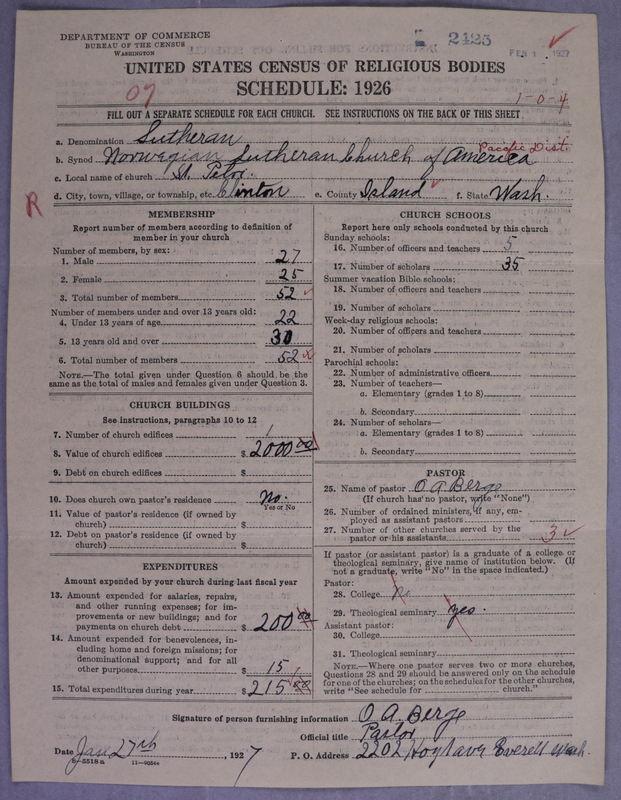 DEPARTMENT OF COMMERCE
BUREAU OF THE CENSUS
WASHINGTON
2423
FEB 1 1927
UNITED STATES CENSUS OF RELIGIOUS BODIES
SCHEDULE: 1926
07
1-0-4
FILL OUT A SEPARATE SCHEDULE FOR EACH CHURCH. SEE INSTRUCTIONS ON THE BACK OF THIS SHEET
a. Denomination Lutheran
Pacific Dist.
b. Synod Norwegian Lutheran Church of America
c. Local name of church St. Peter.
d. City, town, village, or township, etc. Clinton e. County Island f. State Wash.
R
MEMBERSHIP
Report number of members according to definition of
member in your church
Number of members, by sex:
1. Male 27
2. Female 25
3. Total number of members 52
Number of members under and over 13 years old:
4. Under 13 years of age 22
5. 13 years old and over 30
6. Total number of members 52
NOTE.—The total given under Question 6 should be the
same as the total of males and females given under Question 3.
CHURCH BUILDINGS
See instructions, paragraphs 10 to 12
7. Number of church edifices 1
8. Value of church edifices $ 2000 00
9. Debt on church edifices $
10. Does church own pastor's residence No.
Yes or No
11. Value of pastor's residence (if owned by
church) $
12. Debt on pastor's residence (if owned by
church) $
EXPENDITURES
Amount expended by your church during last fiscal year
13. Amount expended for salaries, repairs,
and other running expenses; for im-
provements or new buildings; and for
payments on church debt $ 200 00
14. Amount expended for benevolences, in-
cluding home and foreign missions; for
denominational support; and for all
other purposes $ 15
15. Total expenditures during year $ 215 00
CHURCH SCHOOLS
Report here only schools conducted by this church
Sunday schools:
16. Number of officers and teachers 5
17. Number of scholars 35
Summer vacation Bible schools:
18. Number of officers and teachers
19. Number of scholars
Week-day religious schools:
20. Number of officers and teachers
21. Number of scholars
Parochial schools:
22. Number of administrative officers
23. Number of teachers—
a. Elementary (grades 1 to 8)
b. Secondary
24. Number of scholars—
a. Elementary (grades 1 to 8)
b. Secondary
PASTOR
25. Name of pastor O A Berge
(If church has no pastor, write "None")
26. Number of ordained ministers, if any, em-
ployed as assistant pastors
27. Number of other churches served by the
pastor or his assistants 3
If pastor (or assistant pastor) is a graduate of a college or
theological seminary, give name of institution below. (If
not a graduate, write "No" in the space indicated.)
Pastor:
28. College No
29. Theological seminary Yes.
Assistant pastor:
30. College
31. Theological seminary
NOTE.—Where one pastor serves two or more churches,
Questions 28 and 29 should be answered only on the schedule
for one of the churches; on the schedules for the other churches,
write "See schedule for church."
Signature of person furnishing information O. A. Berge
Official title Pastor
Date Jan. 27th, 1927 P. O. Address 2202 Hoyt Ave Everett Wash.
8-5518a 11-9054a